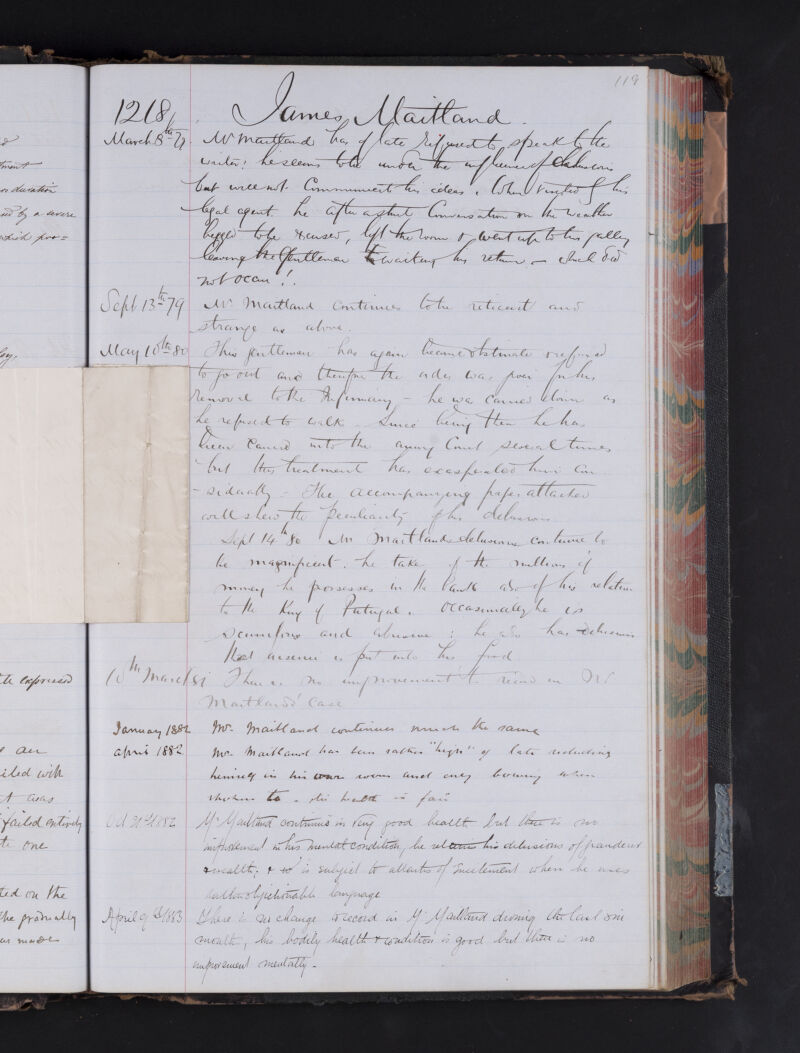 119
1218
James Maitland
March 8th 79 Mr Maitland has of late refused to speak to the
writer: he seems to be under the influence of delusions
but will not communicate his ideas. When visited by his
legal agent he after a short conversation on the weather
begged to be excused, left the room & went up to his gallery
leaving the Gentleman waiting his return – which did
not occur!.
Sept 13th 79 Mr Maitland continues to be reticent and
strange as above.
May 10th 80 This gentleman has again become obstinate & refused
to go out and therefore the order was given for his
removal to the Infirmary – he was carried down as
he refused to walk. Since being there he has
been carried into the airing Court several times
but this treatment has exasperated him con
-siderably – The accompanying paper attached
will shew the peculiarity of his delusions
Sept 14th 80 Mr Maitlands delusions continue to
be magnificent. he talks of the millions of
money he possesses in the bank also of his relation
to the King of Portugal. Occasionally he is
scurrilous and abusive: he also has delusions
that arsenic is put into his food
10th March 81 There is no improvement to record in Mr
Maitlands' case
January 1882 Mr. Maitland continues much the same
April 1882 Mr. Maitland has been rather "high" of late secluding
himself in his own room and only bowing when
spoken to. His health is fair
Oct 1882 Mr Maitland continues in very good health but there is no
improvement in his mental condition, he retains his delusions of grandeur
& wealth; & is subject to attacks of excitement when he uses
rather objectionable language
April 9th 1883 There is no change to record in Mr Maitland during the last six
months, his bodily health & condition is good but there is no
improvement mentally.-
ment
duration
by a severe
which pro=
expressed
an
with
was
failed entirely
one
on the
the gradually
made